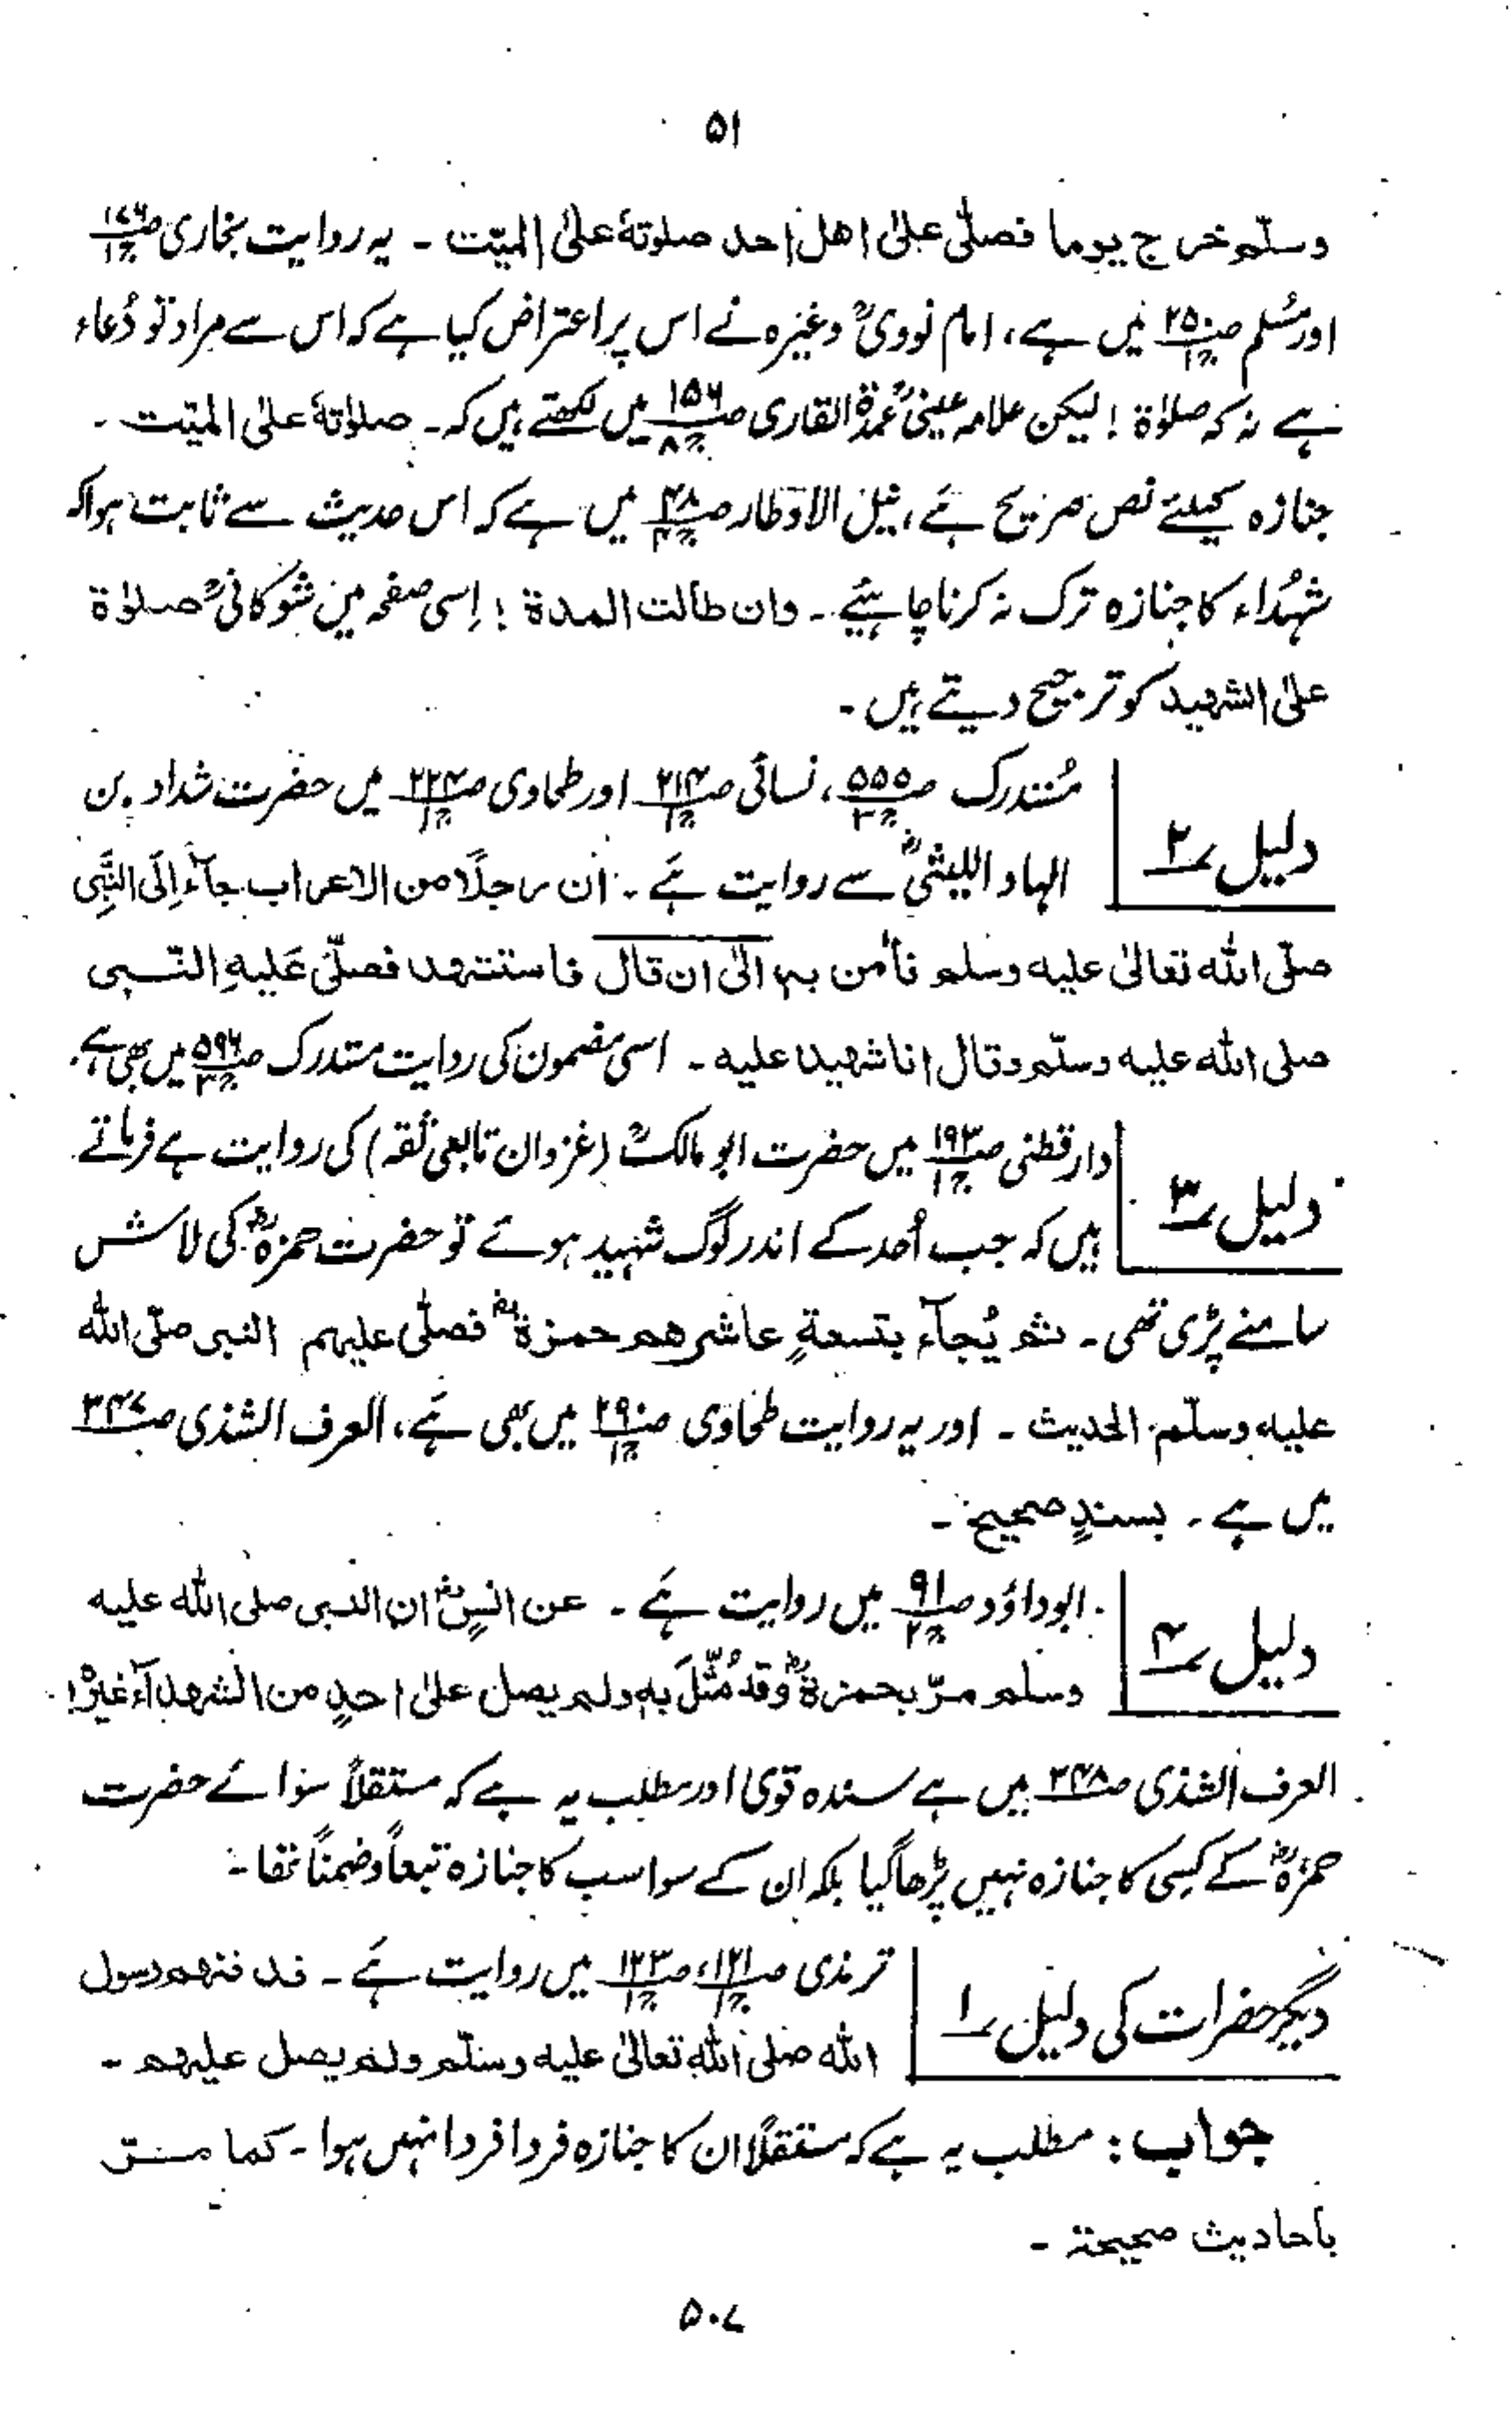 ۵۱
وسلّم خرج يوما فصلّى على اهل احد صلوٰتهٗ علی المیّت ۔ یہ روایت بخاری ص۱۷۶ ج۱
اور مُسلم ص۲۵۰ ج۱ میں ہے، امام نوویؒ وغیرہ نے اس پر اعتراض کیا ہے کہ اس سے مراد تو دُعاء
ہے نہ کہ صلوٰۃ ! لیکن علامہ عینیؒ عمدۃ القاری ص۱۵۶ ج۸ میں لکھتے ہیں کہ ۔ صلوٰتهٗ علی المیّت ۔
جنازہ کیلئے نص صریح ہے، نیل الاوطار ص۴۸ ج۴ میں ہے کہ اس حدیث سے ثابت ہوا کہ
شہُداء کا جنازہ ترک نہ کرنا چاہیئے ۔ وان طالت المدۃ ! اِسی صفحہ میں شوکانیؒ صلوٰۃ
علی الشهید کو ترجیح دیتے ہیں ۔
دلیل ۲؍ مُستدرک ص۵۵۵ ج۳، نسائی ص۲۱۴ ج۱ اور طحاوی ص۲۲۴ ج۱ میں حضرت شداد بن
الہاد اللیثیؓ سے روایت ہے ۔ ان رجلًا من الاعراب جآءَ اِلَی النَّبِی
صلّی الله تعالیٰ علیه وسلم فأمن به الیٰ ان قال فاستشهد فصلّی عَلیهِ النّبی
صلی الله علیه وسلّم وقال انا شهید علیه ۔ اسی مضمون کی روایت مستدرک ص۵۹۶ ج۳ میں بھی ہے،
دلیل ۳؍ دارقطنی ص۱۹۳ ج۱ میں حضرت ابو مالکؒ (غزوان تابعی ثقہ) کی روایت ہے فرماتے
ہیں کہ جب اُحد کے اندر لوگ شہید ہوئے تو حضرت حمزہؓ کی لاش
سامنے پڑی تھی ۔ ثم یُجآء بتسعةٍ عاشرهم حمزةؓ فصلّی علیهم النبی صلّی الله
علیه وسلّم الحدیث ۔ اور یہ روایت طحاوی ص۲۹۰ ج۱ میں بھی ہے، العرف الشذی ص۳۴۷
میں ہے ۔ بسندٍ صحیح ۔
دلیل ۴؍ ابوداؤد ص۹۱ ج۲ میں روایت ہے ۔ عن انسٍؓ ان النبی صلی الله علیه
وسلم مرّ بحمزةؓ وَقد مُثّلَ بِهٖ ولم یصل علیٰ احدٍ من الشهدآء غیرہٗ
العرف الشذی ص۳۴۸ میں ہے سندہ قوی اور مطلب یہ ہے کہ مستقلاً سوائے حضرت
حمزہؓ کے کسی کا جنازہ نہیں پڑھا گیا بلکہ ان کے سوا سب کا جنازہ تبعاً وضمناً تھا ۔
دیگر حضرات کی دلیل ۱؍ ترمذی ص۱۲۱ ج۱، ص۱۲۳ ج۱ میں روایت ہے ۔ فدفنهم رسول
الله صلی الله تعالیٰ علیه وسلّم ولم یصل علیهم ۔
جواب : مطلب یہ ہے کہ مستقلاً ان کا جنازہ فردا فردا نہیں ہوا ۔ کما مرّ
باحادیث صحیحة ۔
۵۰۷